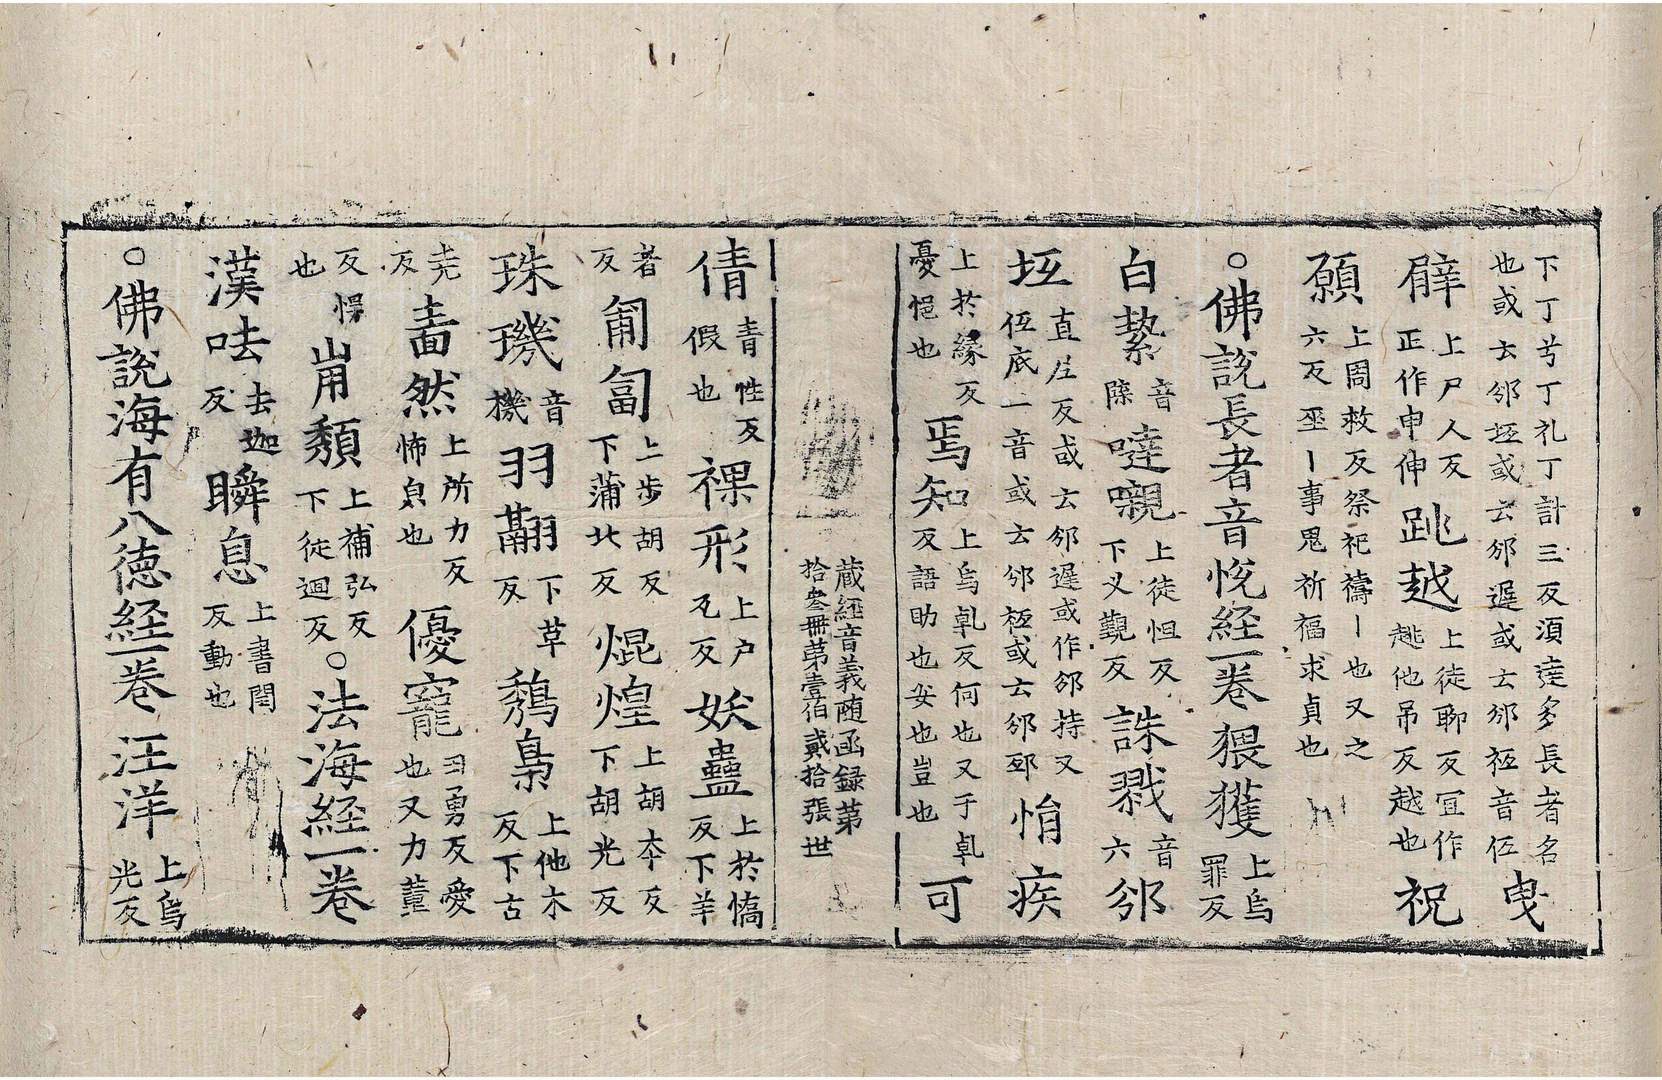 下丁兮丁礼丁計三反湏達多長者名也或云邠坻或云邠遲或云邠秖音伍曳
臂上尸人反正作申伸跳越上徒聊反冝作趒他吊反越也祝
願上周救反祭祀禱丨也又之六反巫丨事鬼祈福求貞也
○佛說長者音悅経一卷猥獲上烏罪反
白縶音陟噠嚫上徒怛反下义覲反誅戮音六邠
坻直尼反或云邠遲或作邠持又伍底二音或云邠秖或云邠郅悁疾
上於緣反憂悒也焉知上烏乹反何也又于乹反語助也安也豈也可
蔵経音義随函録第拾叁冊第壹伯貳拾張世
倩青性反假也裸形上户瓦反妖蠱上於憍反下羊
者反匍匐上步胡反下蒲北反焜煌上胡夲反下胡光反
珠璣音機羽翮下草反鵚梟上他木反下古
尭反啬然上所力反怖皃也優寵丑勇反愛也又力董
反愕也崩頽上補弘反下徒迴反○法海経一卷
漢呿去迦反瞬息上書閏反動也
○佛說海有八德経一卷汪洋上烏光反